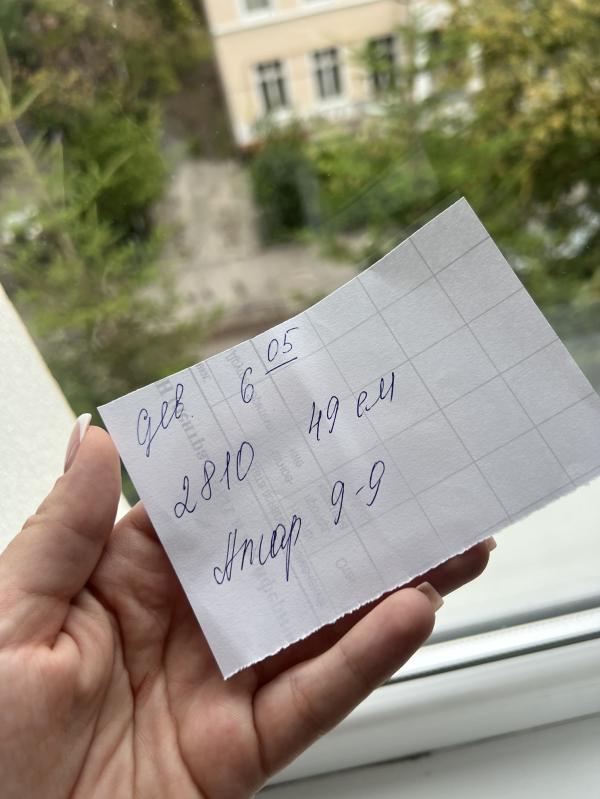 дев. 6 05
2810 49 см
Апгар 9-9